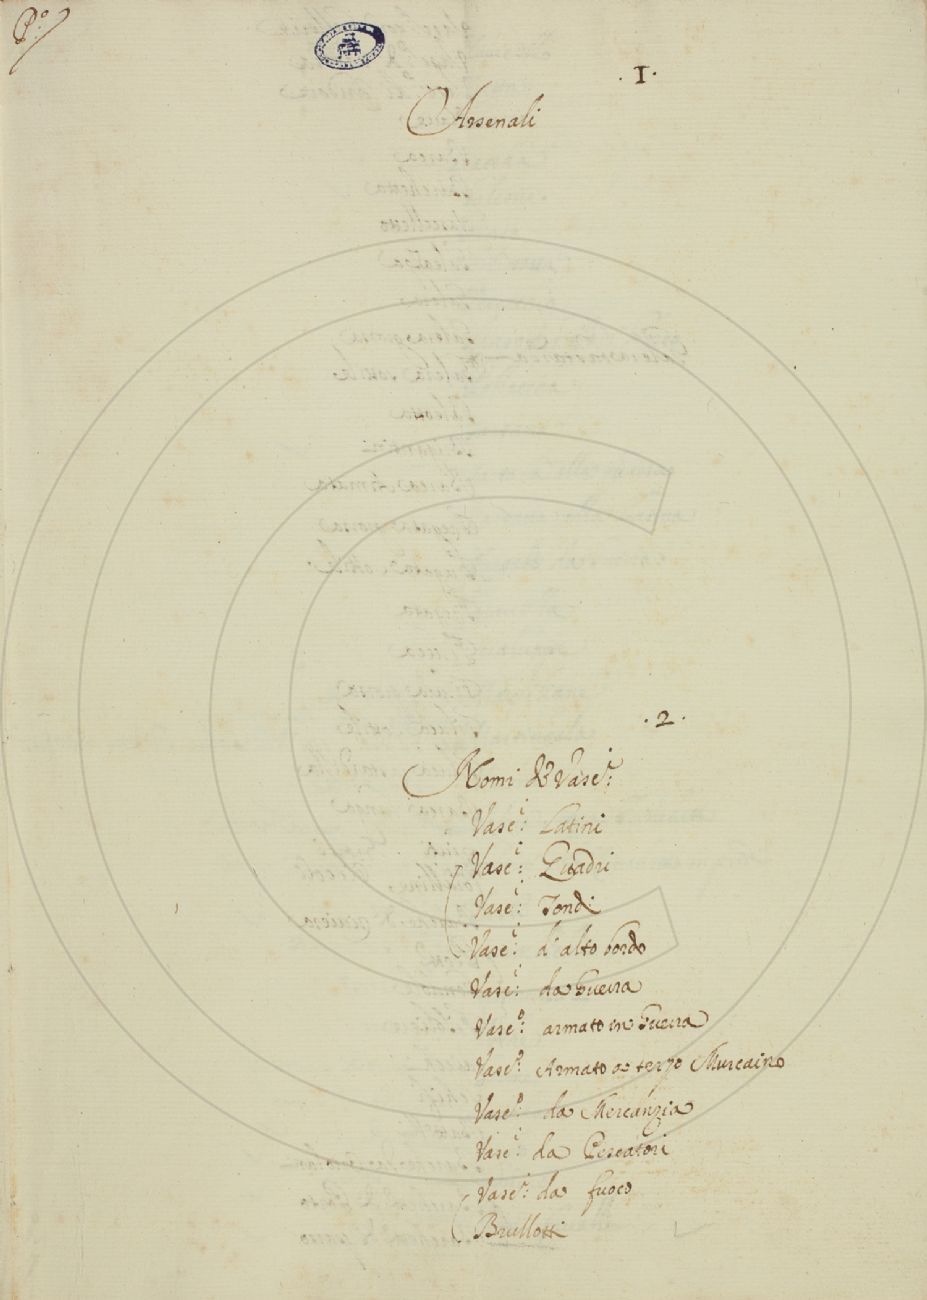 P.º
. I .
Arsenali
. 2 .
Nomi de Vase.i:
Vase.i: Latini
Vase.i: Quadri
Vase.i: Tondi
Vase.i: d'alto bordo
Vase.i: da Guerra
Vase.o: armato in Guerra
Vase.o: Armato a terzo
Vase.o: da Mercanzia
Vase.i: da Pescatori
Vase.i: da fuoco
Brullotti